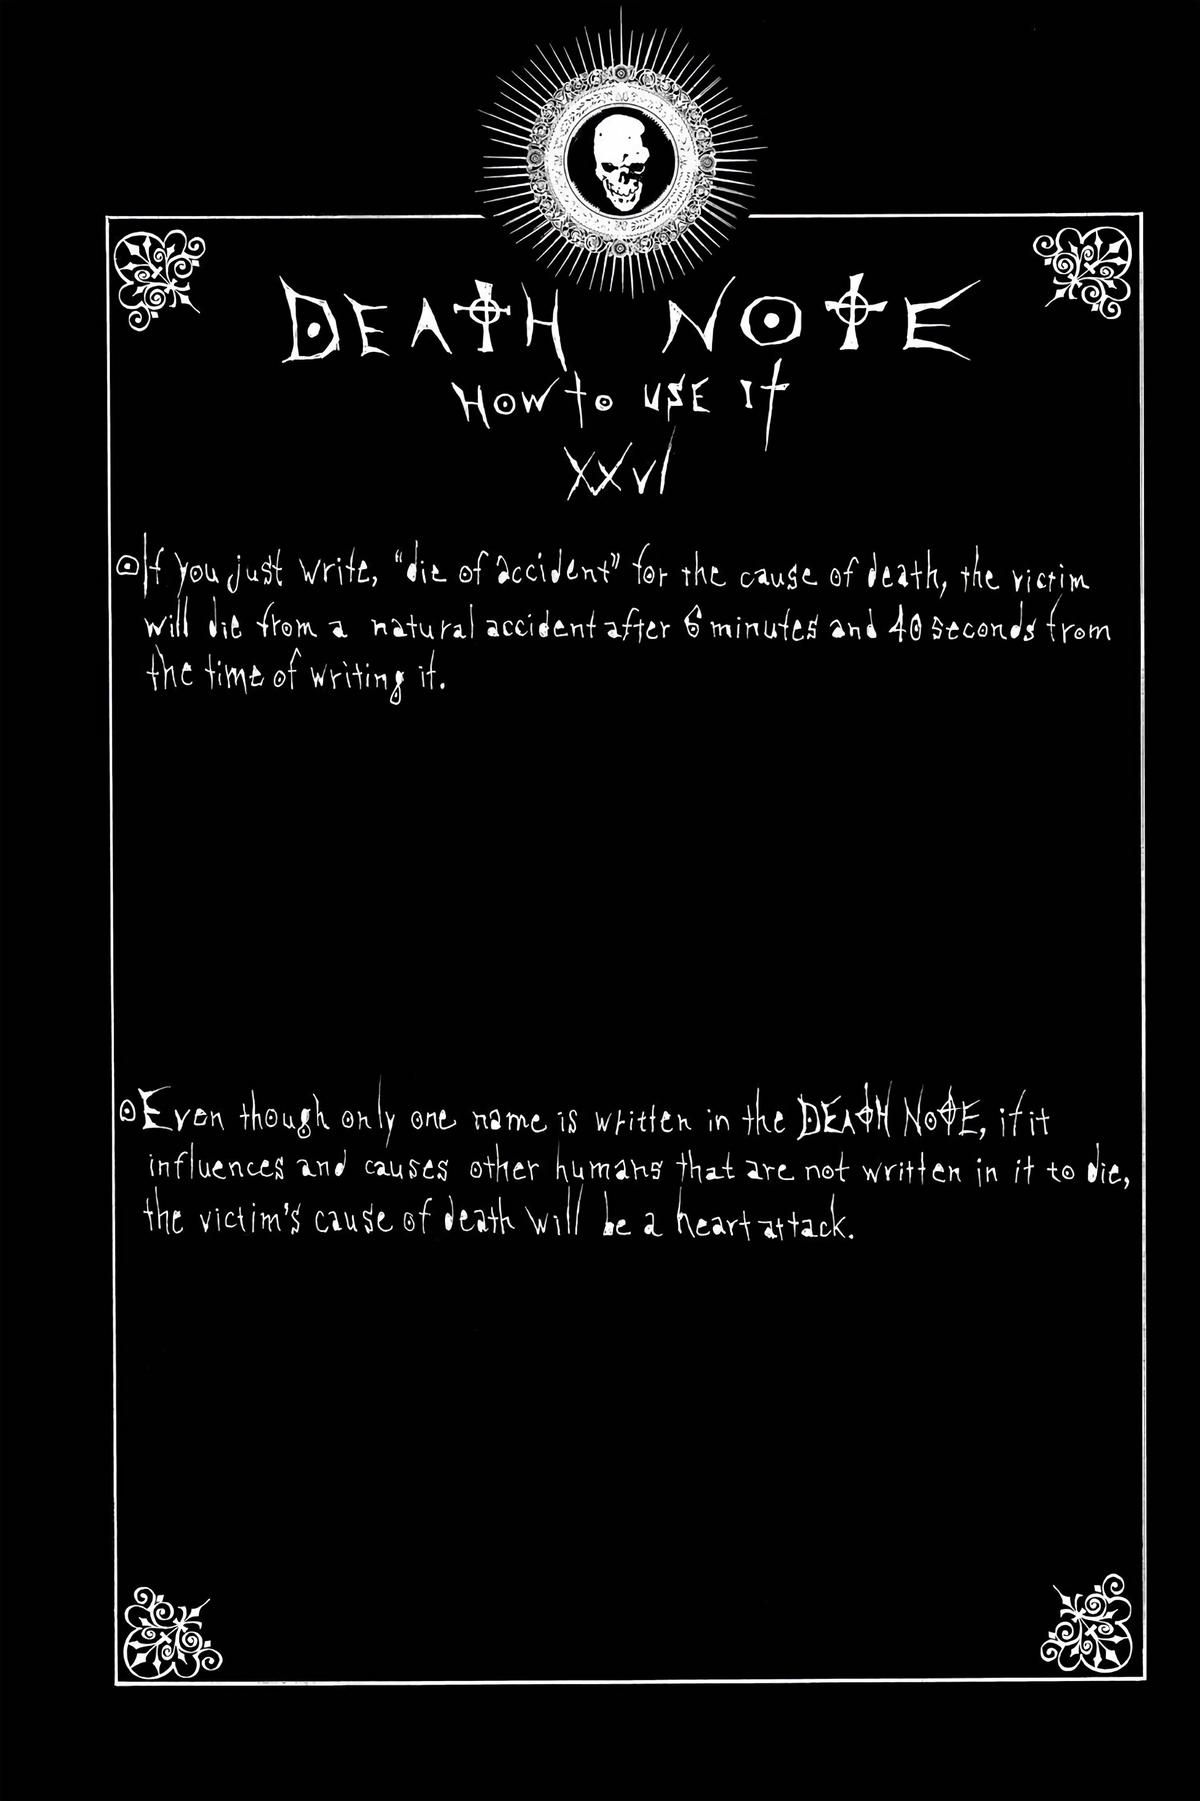 DEATH NOTE
HOW to USE It
XXVI
If you just write, "die of accident" for the cause of death, the victim
will die from a natural accident after 6 minutes and 40 seconds from
the time of writing it.
Even though only one name is written in the DEATH NOTE, if it
influences and causes other humans that are not written in it to die,
the victim's cause of death will be a heart attack.